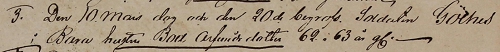 3. Den 10 mars dog och den 20 d. begrofs. Soldaten Göthes
i Barra hustru Boel Arfwidsdotter 62 i 63 år gl.